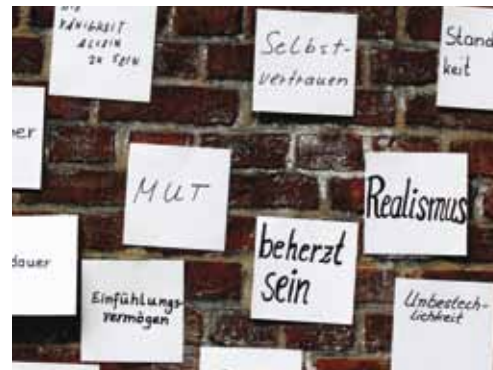 DIE
FÄHIGKEIT
ALLEIN
ZU SEIN
Selbst-
vertrauen
Stand
keit
er
MUT
Realismus
dauer
Einfühlungs-
vermögen
beherzt
sein
Unbestech-
lichkeit